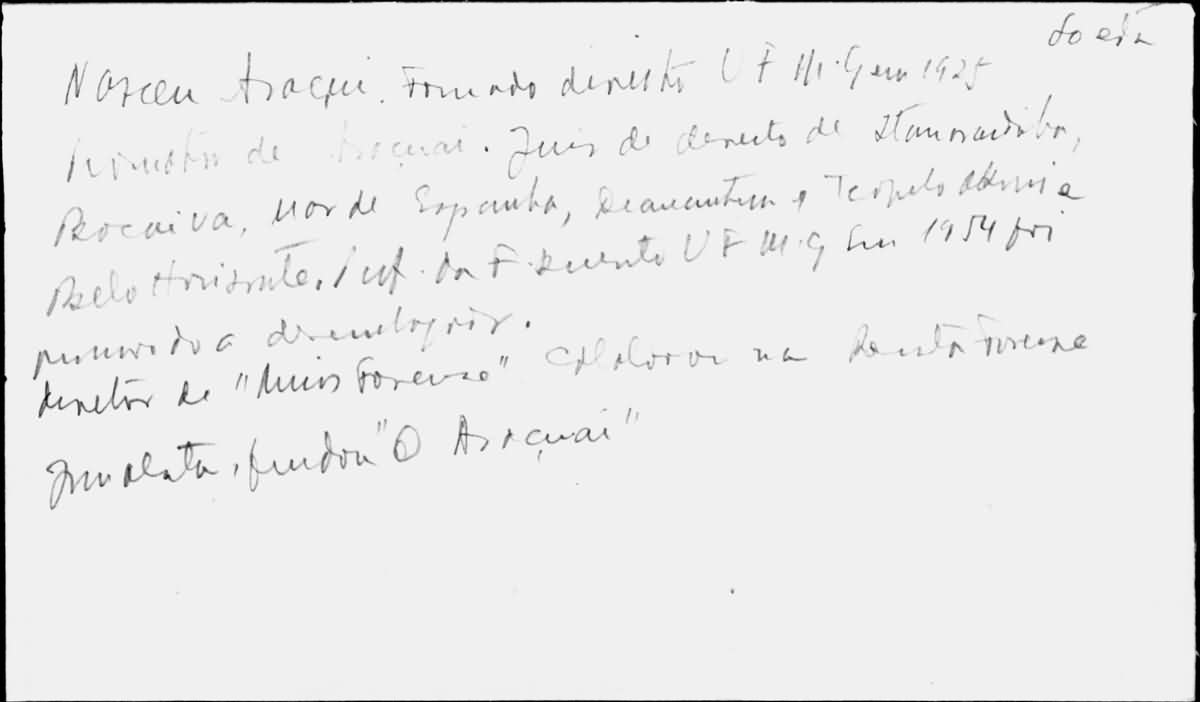 Poeta
Nasceu Araçui. Formado direito U F M.G em 1925
Promotor de Araçuai. Juis de direito de Itamarandiba,
Bocaiva, Mar de Espanha, Diamantina e Teofilo Otoni e
Belo Horizonte. Prof. da F. Direito U F M.G Em 1954 foi
promovido a desembargador.
diretor de "Minas Forense" Colaborou na Revista Forense
Jornalista, fundou "O Araçuai"